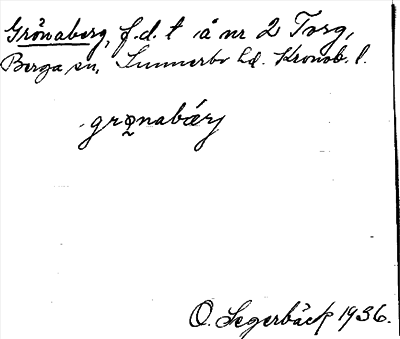 Grönaberg, f.d. t å nr 2 Torg,
Berga sn, Sunnerbo hd. Kronob. l.
grǫnabǽrj
O. Segerbäck 1936.